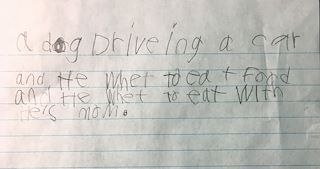 a dog Driveing a car
and He Whet to eat Food
and He Whet to eat With
Hers mom.